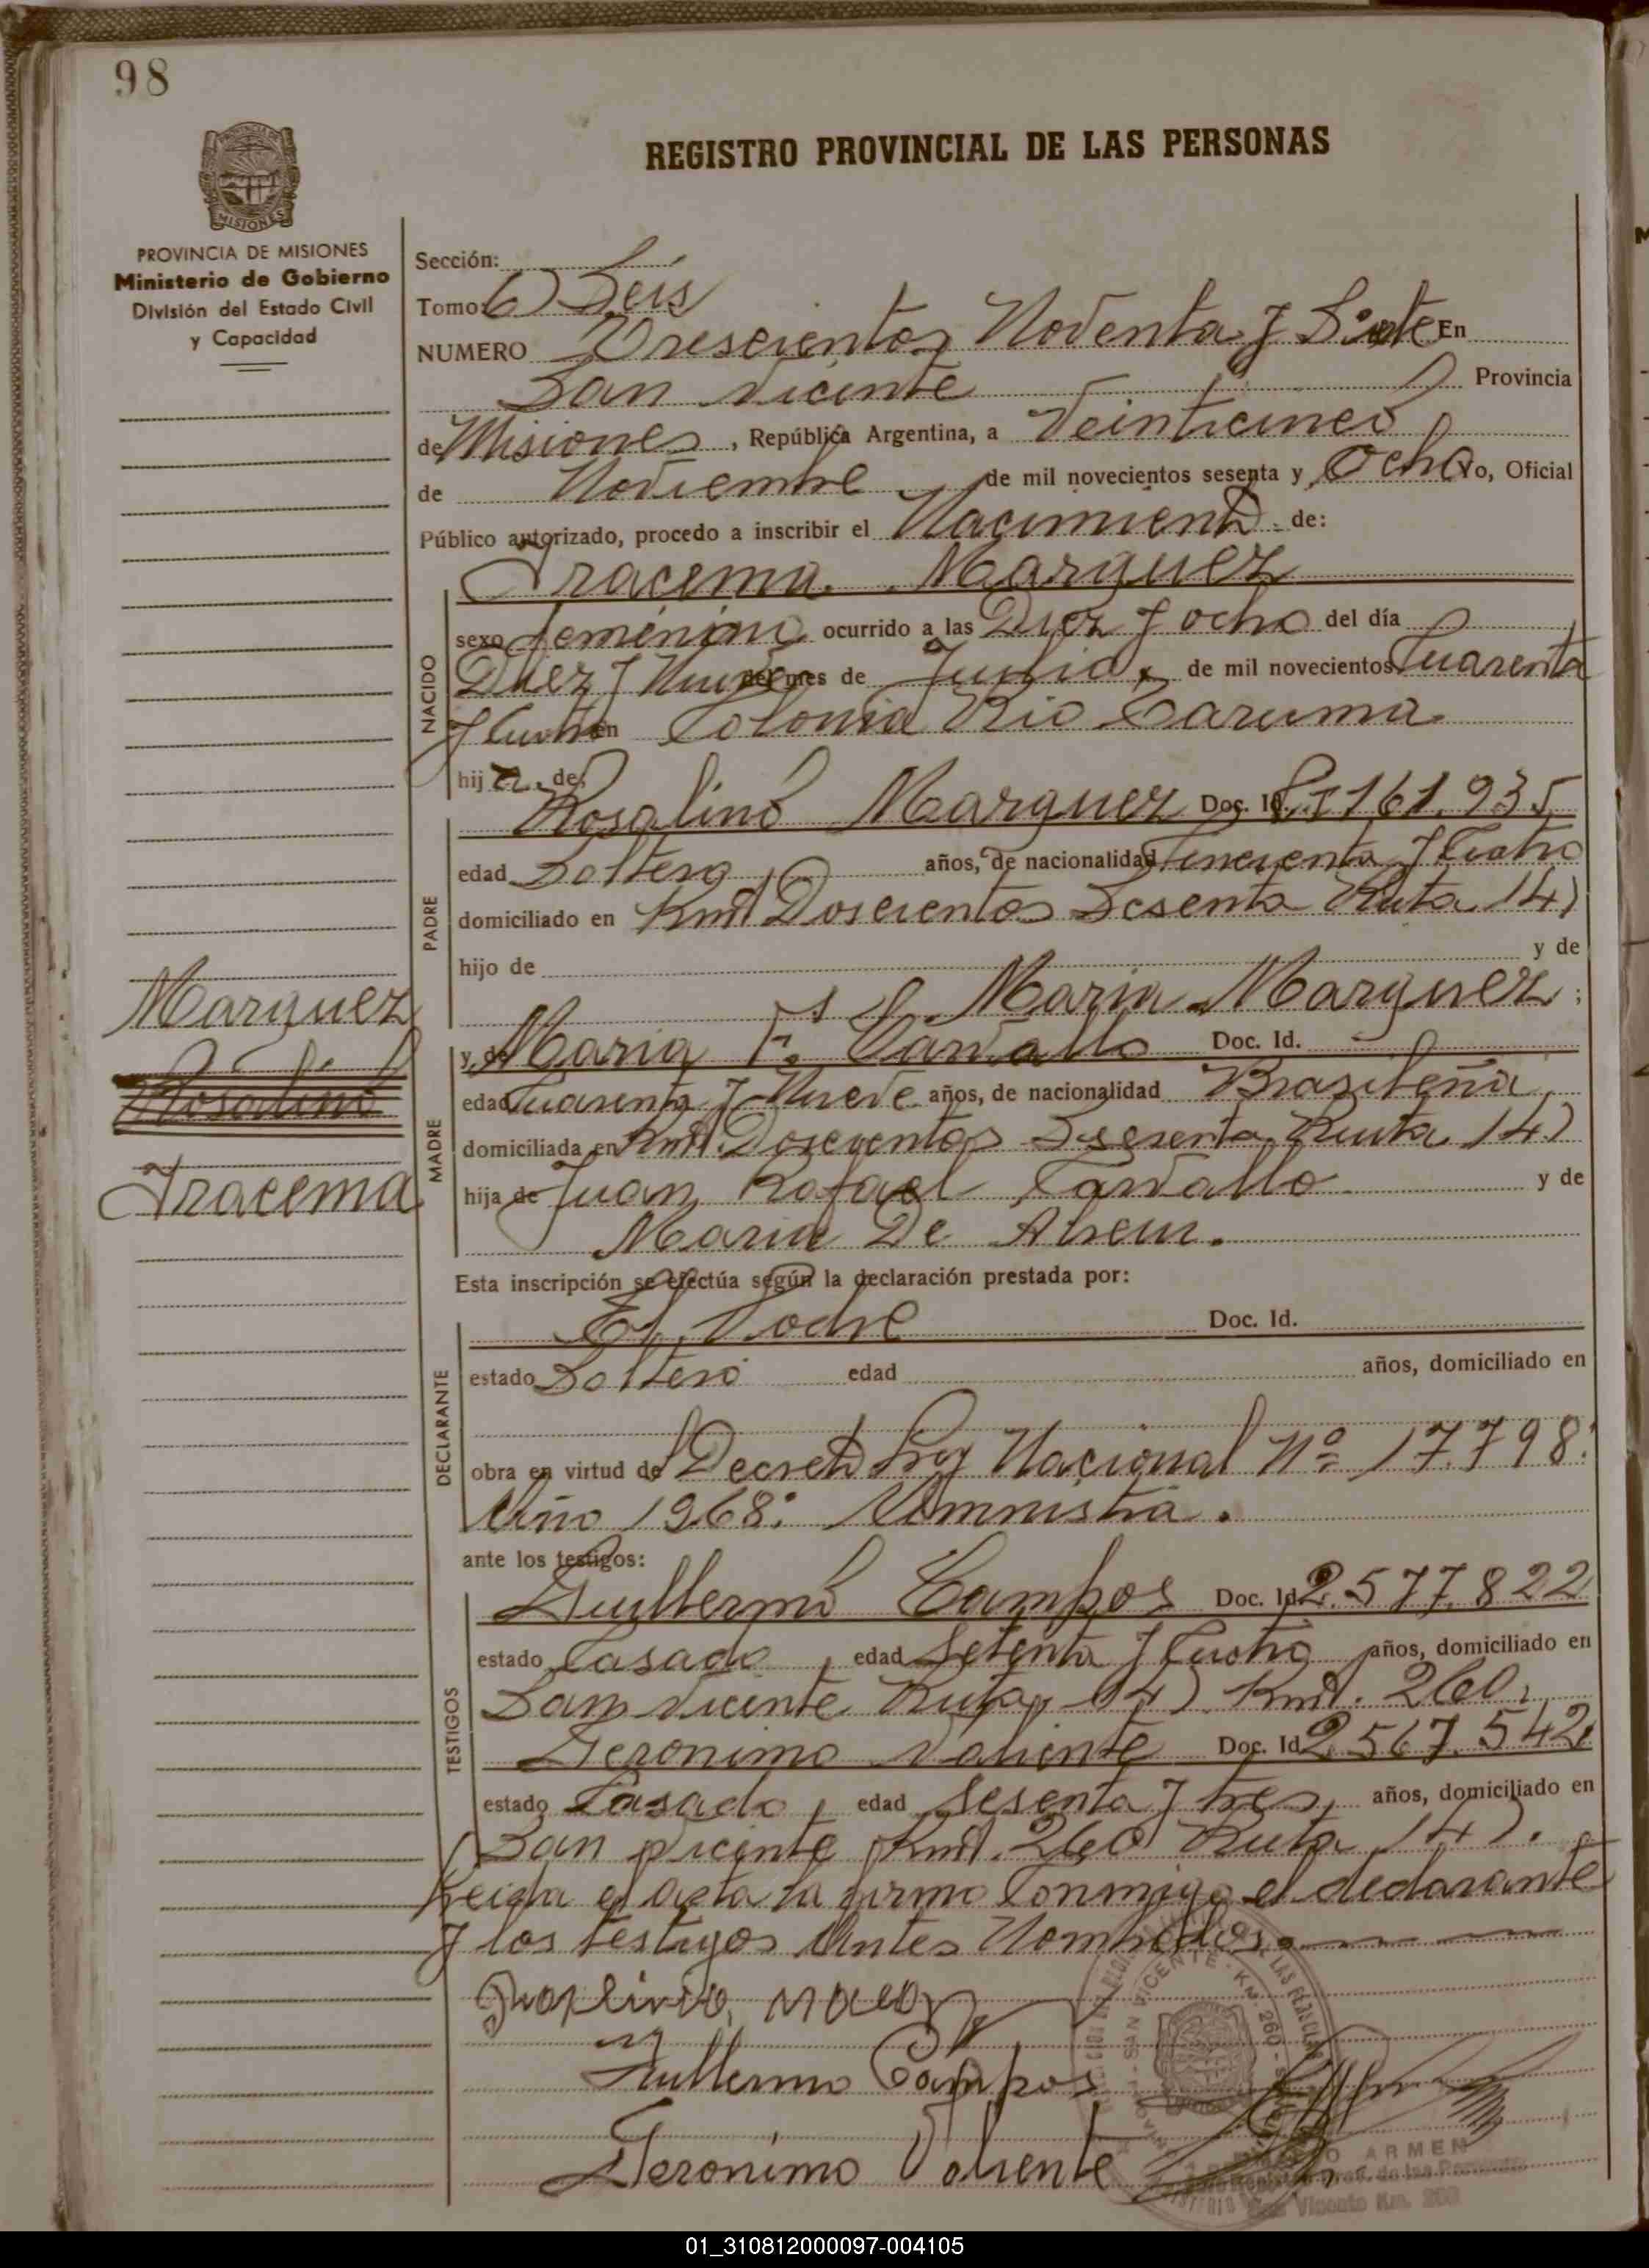 98
REGISTRO PROVINCIAL DE LAS PERSONAS
PROVINCIA DE MISIONES
Ministerio de Gobierno
División del Estado Civil
y Capacidad
Sección:
Tomo: 6) Seis
NUMERO Trescientos Noventa y Siete En
San Vicente Provincia
de Misiones, República Argentina, a Veinticinco
de Noviembre de mil novecientos sesenta y Ocho Yo, Oficial
Público autorizado, procedo a inscribir el Nacimiento de:
Iracema Marquez
sexo femenino ocurrido a las Diez y ocho del día
Diez y Nueve del mes de Julio, de mil novecientos Cuarenta
y Cuatro en Colonia Rio
NACIDO
hija de:
Rosalino Marquez Doc. Id. 161.935
edad Soltero años, de nacionalidad Cincuenta y Cuatro
domiciliado en Kmt Doscientos Sesenta Ruta 14)
PADRE
hijo de y de
Maria Marquez;
Marquez
Rosalino
Iracema
y de Maria F. Carvallo Doc. Id.
edad Cuarenta y Nueve años, de nacionalidad Brasileña
domiciliada en Kmt. Doscientos Sesenta, Ruta 14)
MADRE
hija de Juan Rafael Carvallo y de
Maria De Abreu.
Esta inscripción se efectúa según la declaración prestada por:
El Padre Doc. Id.
estado Soltero edad años, domiciliado en
DECLARANTE
obra en virtud de Decreto Ley Nacional Nº 17.798:
Año 1968: Amnistia.
ante los testigos:
Guillermo Campos Doc. Id. 2.577.822
estado Casado, edad Setenta y Cuatro años, domiciliado en
San Vicente Ruta, 14) Kmt. 260,
TESTIGOS
Geronimo Valiente Doc. Id. 2.567.542
estado Casado, edad Sesenta y tres, años, domiciliado en
San Vicente Kmt. 260 Ruta 14).
Leida el acta la firmo Conmigo el declarante
y los testigos Antes Nombrados.
Guillermo Campos
Geronimo Valiente
SAN VICENTE - KM. 260
ARMEN
San Vicente Km. 260
01_310812000097-004105